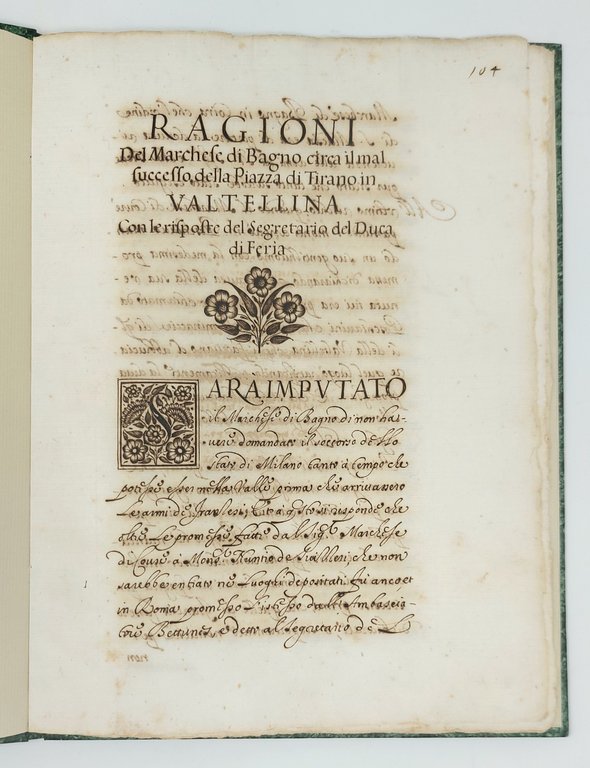 104
RAGIONI
Del Marchese di Bagno circa il mal
successo della Piazza di Tirano in
VALTELLINA
Con le risposte del Segretario del Duca
di Feria
SARA IMPVTATO
il Marchese di Bagno di non ha-
uere domandato il soccorso dello
stato di Milano tanto à tempo che
potesse esser nella Valle prima che arriuassero
le armi de francesi; Et à questo si risponde che
oltre le promesse fatte dal Sig.r Marchese
di Couré à Mons.r Nuntio de Suizzeri, che non
sarebbe entrato ne luoghi depositati fù anco
in Roma promesso l'istesso dall' Ambascia-
tore Bettunes, e detto al Segretario de
non